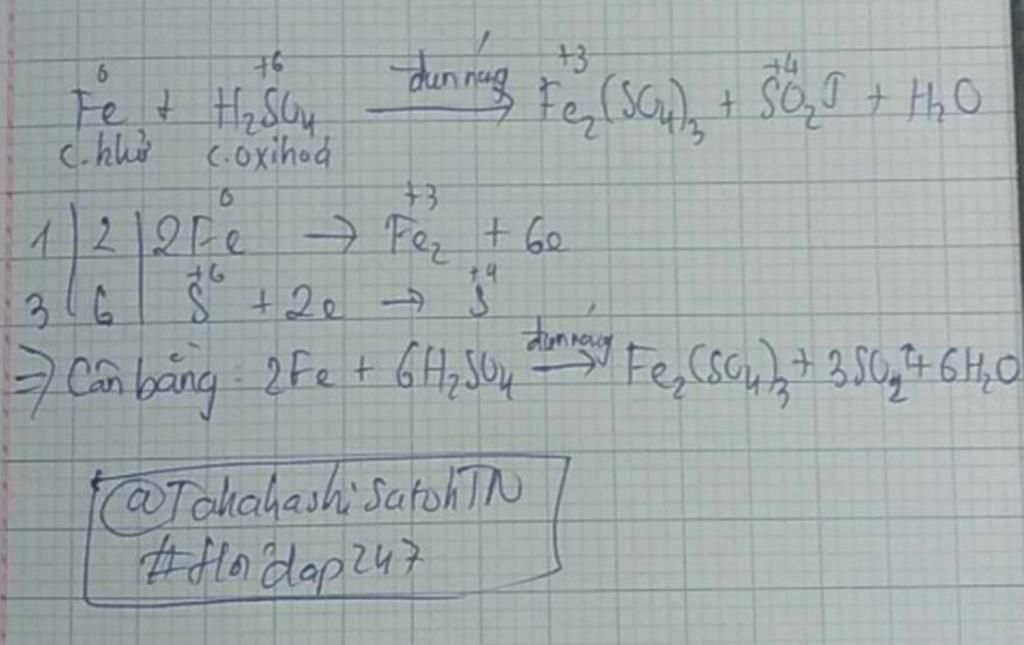 0 +6 +3 +4
Fe + H₂SO₄ →(đun nóng) Fe₂(SO₄)₃ + SO₂↑ + H₂O
c.khử c.oxihoá
0 +3
1 | 2 | 2Fe → Fe₂ + 6e
+6 +4
3 | 6 | S + 2e → S
⇒ Cân bằng: 2Fe + 6H₂SO₄ →(đun nóng) Fe₂(SO₄)₃ + 3SO₂↑ + 6H₂O
@TakahashiSatohTN
#Hoidap247